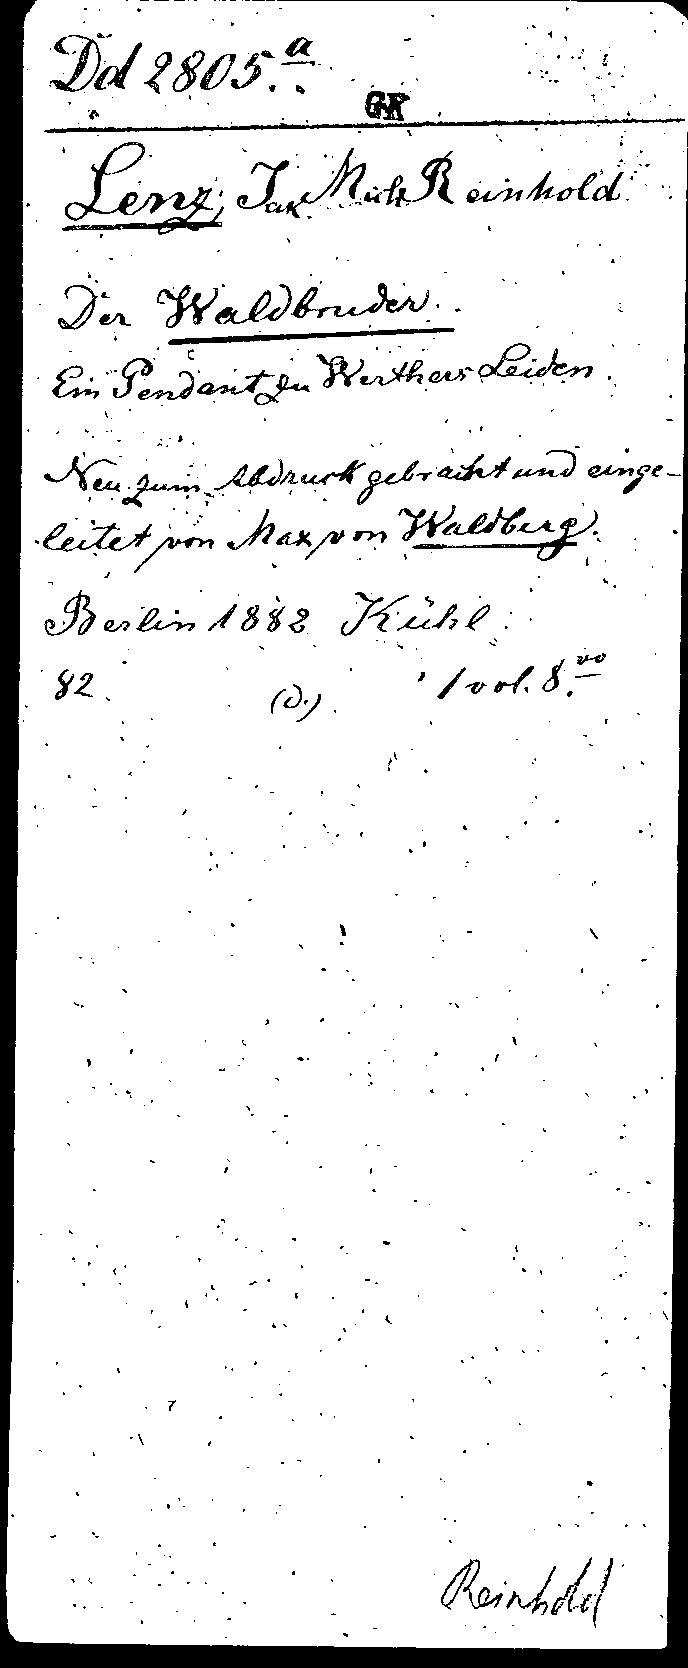 Dd 2805.a
GK
Lenz, Jak Mich Reinhold
Der Waldbruder.
Ein Pendant zu Werthers Leiden.
Neu zum Abdruck gebracht und einge-
leitet von Max von Waldberg.
Berlin 1882 Kühl
82. (d.) 1 vol. 8.vo
Reinhold